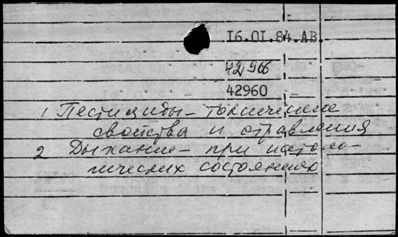 16.01.84.АВ.
42966
42960
1 Пестициды – токсические
свойства и отравления
2 Дыхание – при патоло-
гических состояниях